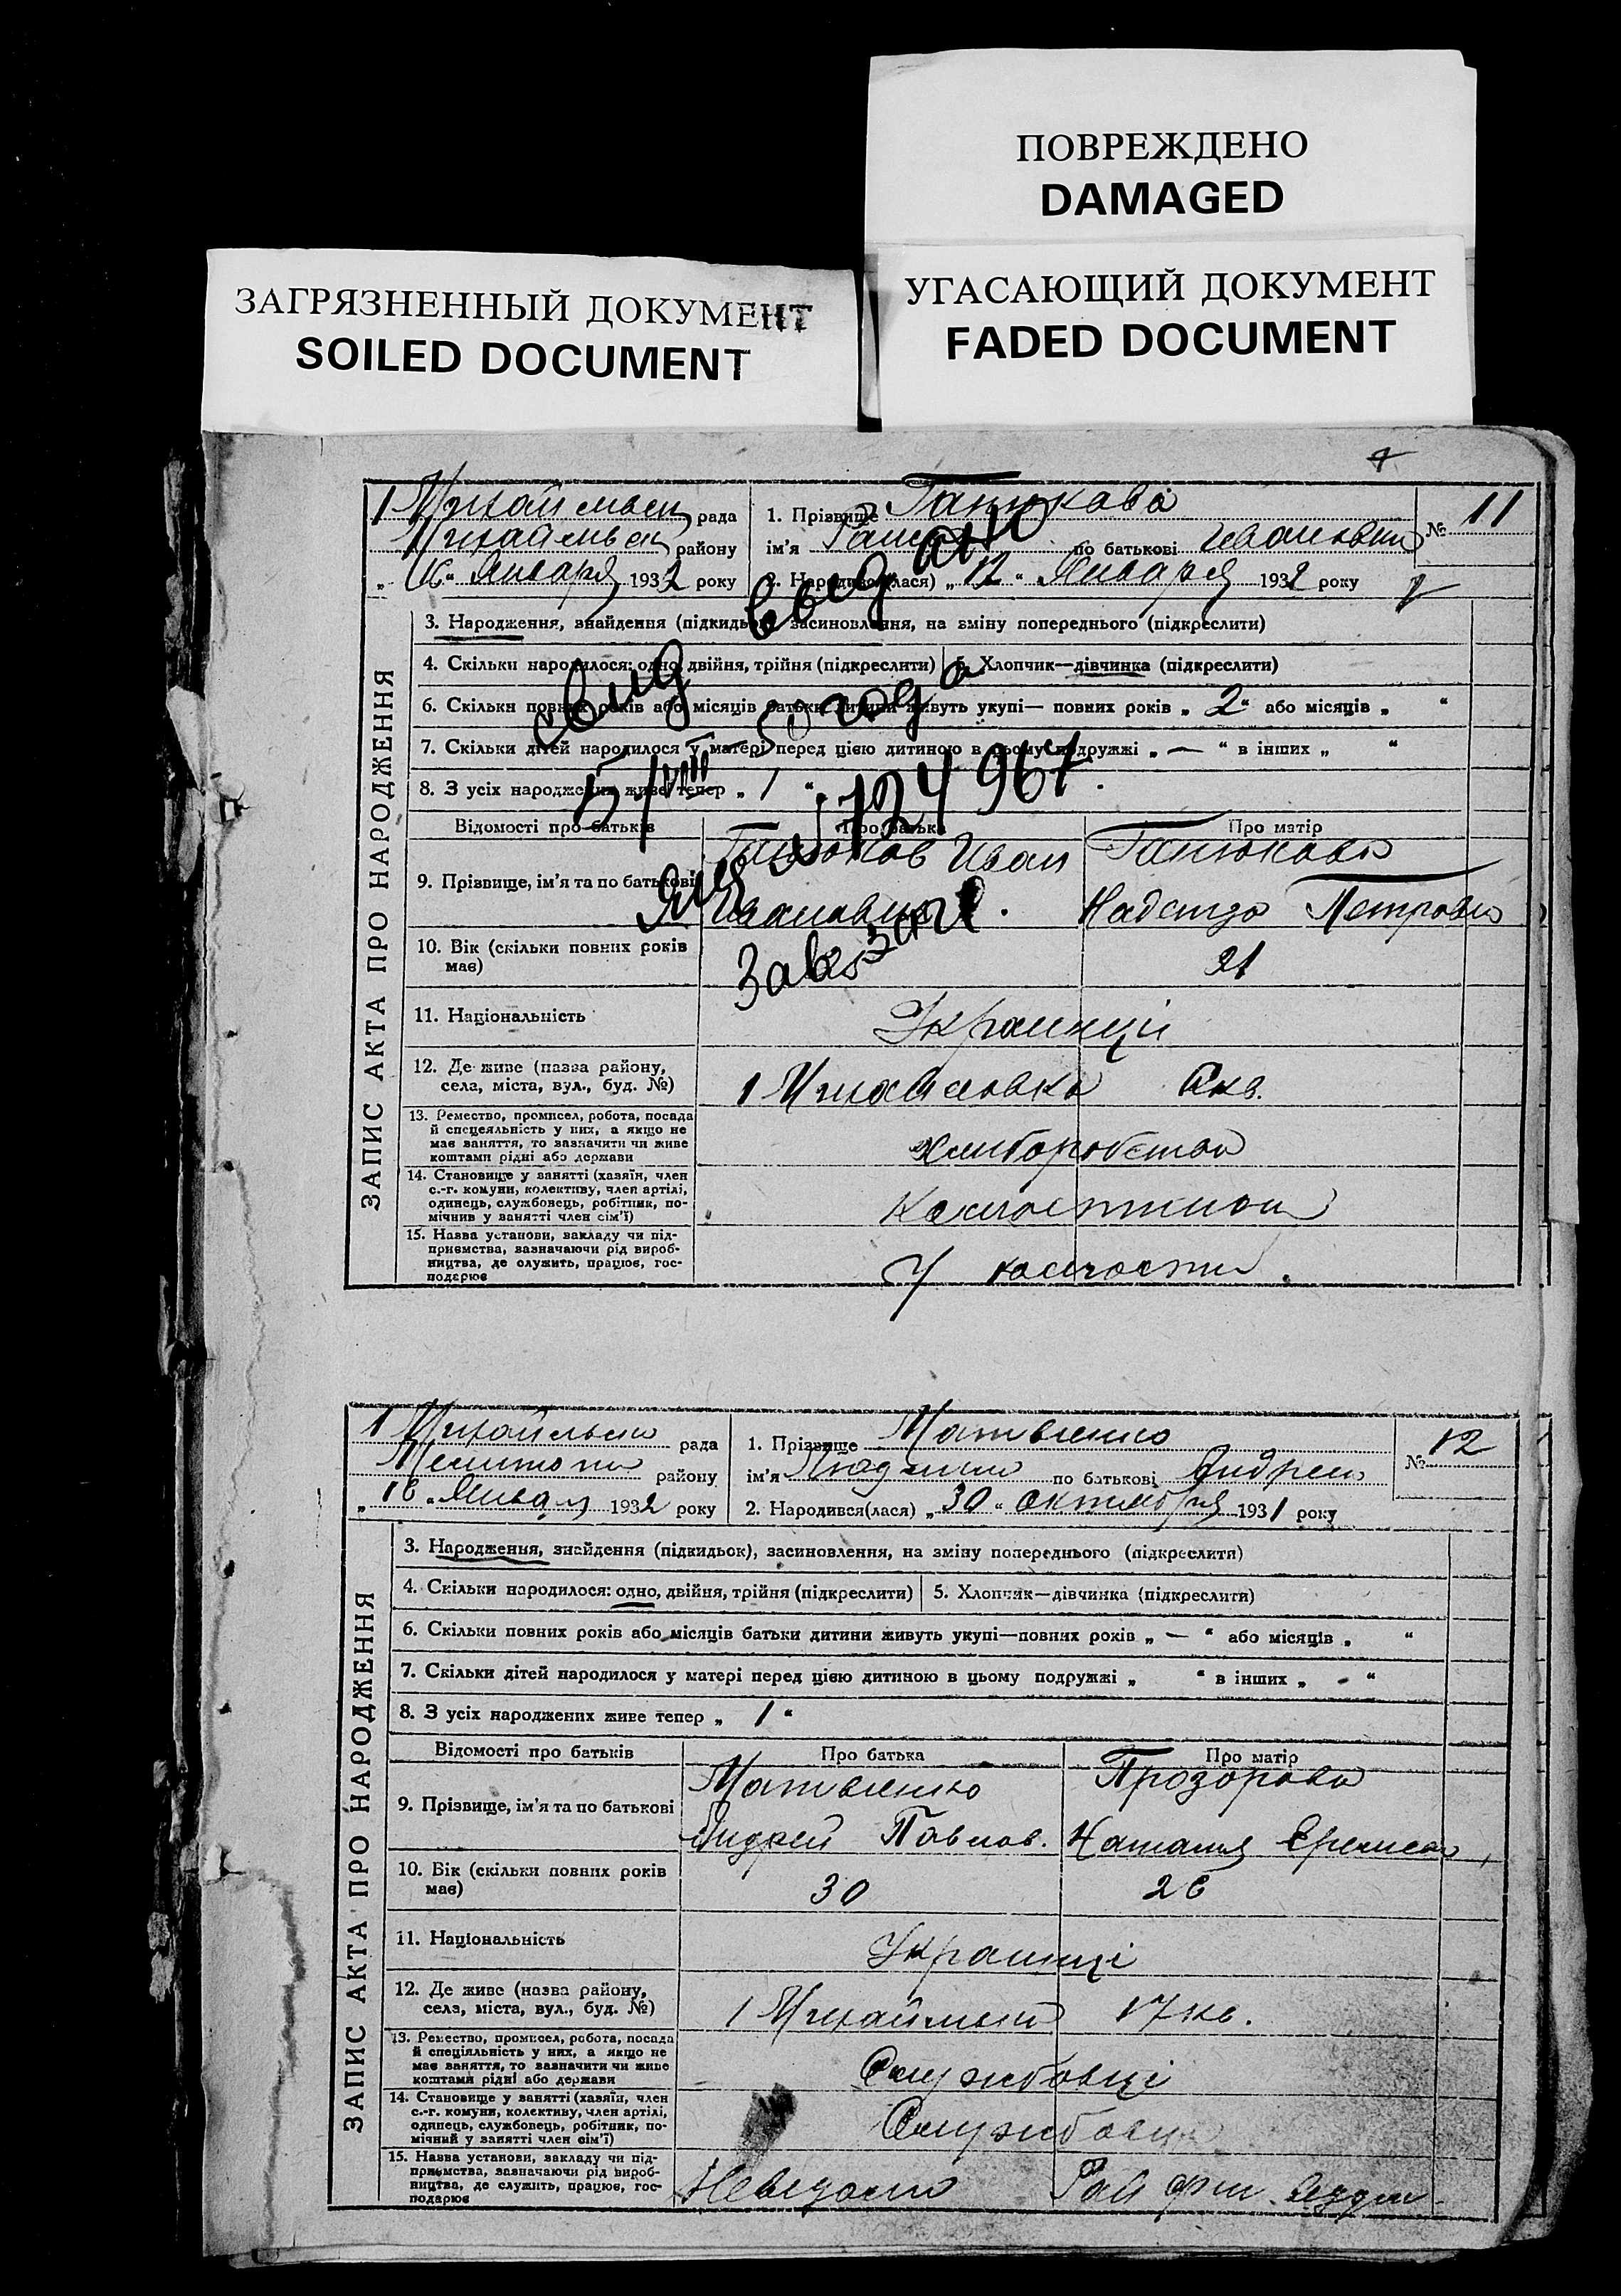 ПОВРЕЖДЕНО
DAMAGED
УГАСАЮЩИЙ ДОКУМЕНТ
FADED DOCUMENT
ЗАГРЯЗНЕННЫЙ ДОКУМЕНТ
SOILED DOCUMENT
рада
1. Прізвище
№ 11
району
ім'я
по батькові
„ 16 “ Января 1932 року
2. Народився(лася) „ 12 “ Января 1932 року
ЗАПИС АКТА ПРО НАРОДЖЕННЯ
3. Народження, знайдення (підкидьок), засиновлення, на зміну попереднього (підкреслити)
4. Скільки народилося: одно, двійня, трійня (підкреслити)
5. Хлопчик—дівчинка (підкреслити)
6. Скільки повних років або місяців батьки дитини живуть укупі— повних років „ 2 “ або місяців „ “
7. Скільки дітей народилося у матері перед цією дитиною в цьому подружжі „ — “ в інших „ “
8. З усіх народжених живе тепер „ 1 “
свид выдано
5/VIII-50 года
724967.
Відомості про батьків
Про батька
Про матір
9. Прізвище, ім'я та по батькові
Иван
Петровна
10. Вік (скільки повних років має)
21
11. Національність
Українці
12. Де живе (назва району, села, міста, вул., буд. №)
1 Михайловка
13. Ремество, промисел, робота, посада
й спеціяльність у них, а якщо не
має заняття, то зазначити чи живе
коштами рідні або держави
14. Становище у занятті (хазяїн, член
с.-г. комуни, колективу, член артілі,
одинець, службовець, робітник, по-
мічний у занятті член сім'ї)
15. Назва установи, закладу чи під-
приємства, зазначаючи рід вироб-
ництва, де служить, працює, гос-
подарює
рада
1. Прізвище Матвиенко
№ 12
району
ім'я
по батькові
„ 16 “ Января 1932 року
2. Народився(лася) „ 30 “ октября 1931 року
ЗАПИС АКТА ПРО НАРОДЖЕННЯ
3. Народження, знайдення (підкидьок), засиновлення, на зміну попереднього (підкреслити)
4. Скільки народилося: одно, двійня, трійня (підкреслити)
5. Хлопчик—дівчинка (підкреслити)
6. Скільки повних років або місяців батьки дитини живуть укупі—повних років „ — “ або місяців „ “
7. Скільки дітей народилося у матері перед цією дитиною в цьому подружжі „ “ в інших „ - “
8. З усіх народжених живе тепер „ 1 “
Відомості про батьків
Про батька
Про матір
9. Прізвище, ім'я та по батькові
Матвиенко
Прозорова
Андрей Павлов.
Наталия
10. Вік (скільки повних років має)
30
26
11. Національність
Українці
12. Де живе (назва району, села, міста, вул., буд. №)
17 кв.
13. Ремество, промисел, робота, посада
й спеціяльність у них, а якщо не
має заняття, то зазначити чи живе
коштами рідні або держави
Службовці
14. Становище у занятті (хазяїн, член
с.-г. комуни, колективу, член артілі,
одинець, службовець, робітник, по-
мічний у занятті член сім'ї)
Службовці
15. Назва установи, закладу чи під-
приємства, зазначаючи рід вироб-
ництва, де служить, працює, гос-
подарює